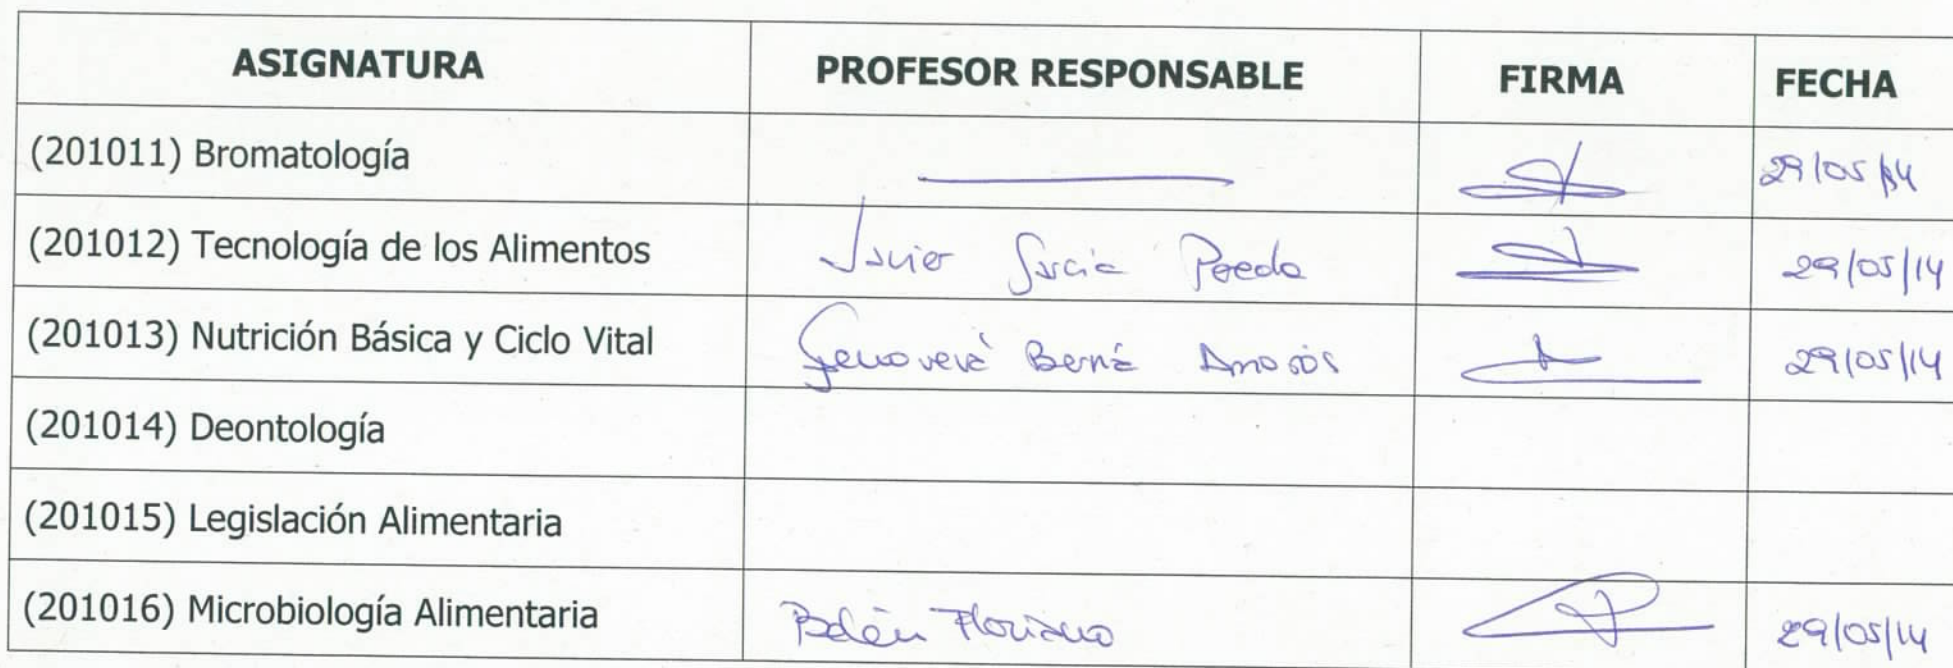 ASIGNATURA PROFESOR RESPONSABLE FIRMA FECHA
(201011) Bromatología 29/05/14
(201012) Tecnología de los Alimentos Javier García Poedo 29/05/14
(201013) Nutrición Básica y Ciclo Vital Genoveva Berná Amorós 29/05/14
(201014) Deontología
(201015) Legislación Alimentaria
(201016) Microbiología Alimentaria Belén Floriano 29/05/14